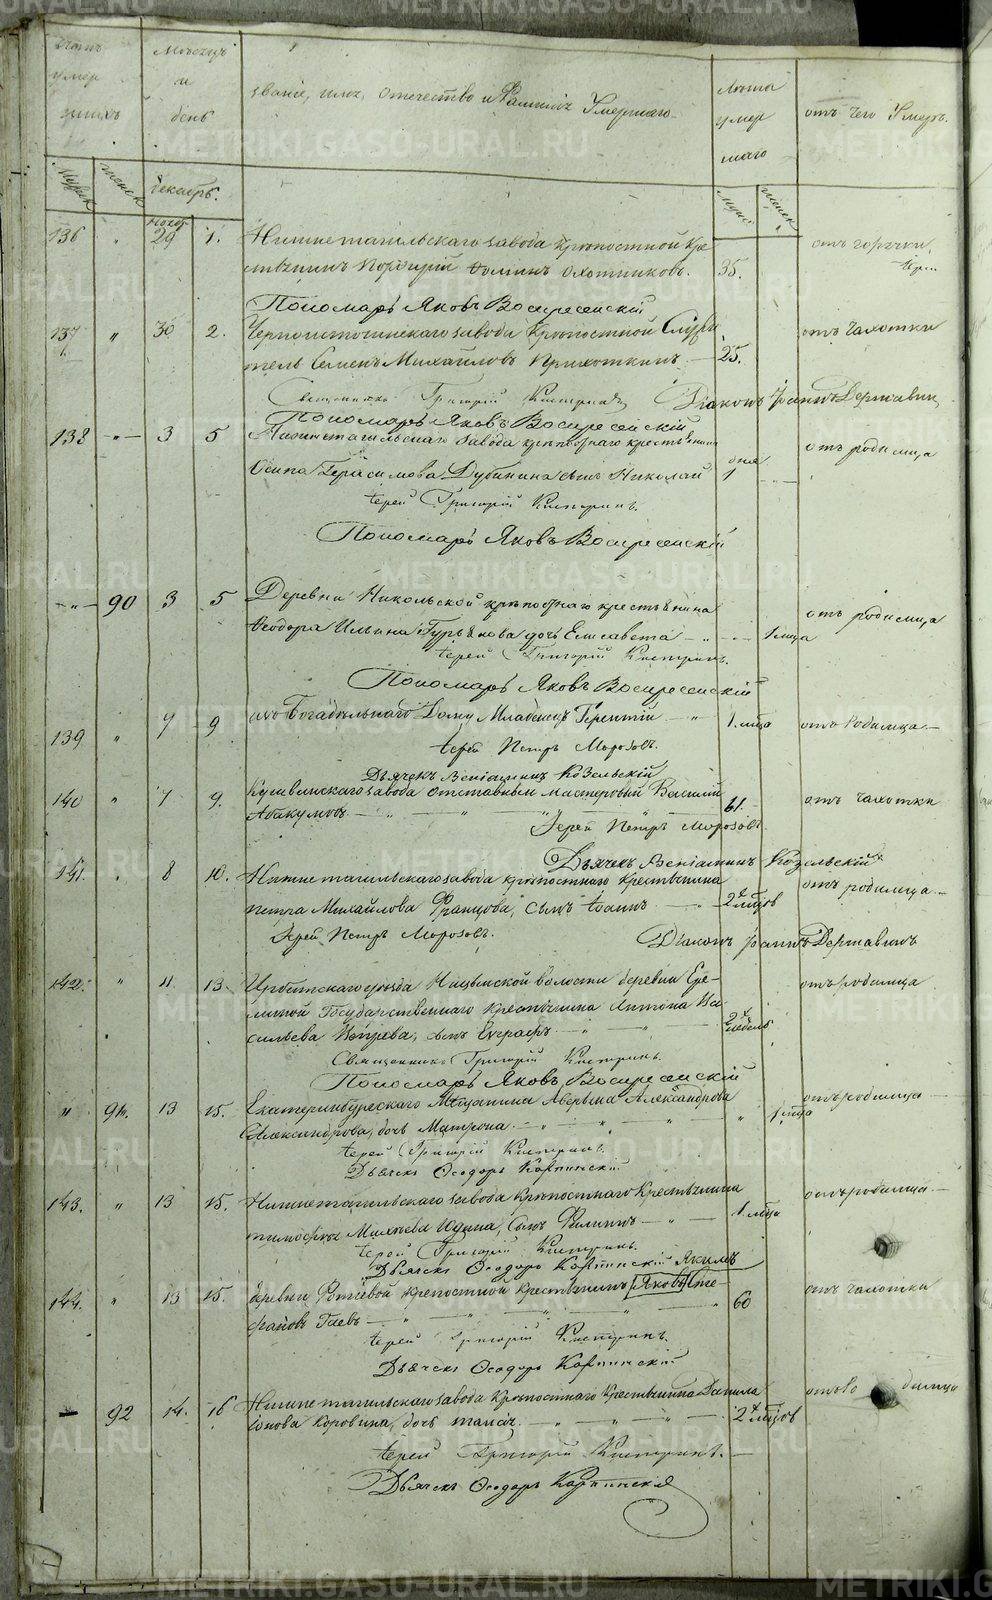 METRIKI.GASO-URAL.RU
Мѣсяцъ
и
день
званіе, имя, отечество и Фамилія Умершаго
Лѣта
умер
шаго
отъ чего Умеръ.
Мужск
женск
декабрь.
Муж
женск
136 " Нояб 29 1. Нижнетагильскаго завода крѣпостной кре
стьянинъ Порфирій Ѳоминъ Охотниковъ. 35. отъ горячки
Пономарь Яковъ Воскресенскій
137 " 30 2. Черноисточинскаго завода крѣпостной Служи
тель Семенъ Михайловъ 25. отъ чахотки
Священникъ Григорій Діаконъ Іоаннъ Державин
Пономарь Яковъ Воскресенскій
138 " 3 5 Нижнетагильскаго завода крѣпостнаго крестьянина
Осипа Герасимова Дубинина сынъ Николай дня 1 отъ родимца
Іерей Григорій
Пономарь Яковъ Воскресенскій
" 90 3 5 Деревни Никольской крѣпостнаго крестьянина
Ѳеодора Ильина Гурьянова дочь Елисавета 1 мѣца отъ родимца
Іерей Григорій
Пономарь Яковъ Воскресенскій
139 " 7 9 изъ Богадѣльнаго Дому Младенецъ Терентій 1 мѣца отъ Родимца
Іерей Петръ Морозовъ.
Дьячекъ Веніаминъ Козельскій
140 " 7 9. Кушвинскаго завода отставный мастеровый Василій
Абакумовъ 61. отъ чахотки
Іерей Петръ Морозовъ
Дьячекъ Веніаминъ Козельскій
141. " 8 10. Нижнетагильскаго завода крѣпостнаго Крестьянина
Петра Михайлова Францова, сынъ Іоаннъ 2хъ мѣцовъ отъ родимца
Іерей Петръ Морозовъ. Діаконъ Іоаннъ Державинъ
142. " 11 13. Ирбитскаго уѣзда Ницынской волости деревни Ере-
миной Государственнаго Крестьянина Антона Ва-
сильева сынъ Евграфъ 2хъ недель отъ родимца
Священникъ Григорій
Пономарь Яковъ Воскресенскій
" 91. 13 15. Екатеринбургскаго Мѣщанина Аверьяна Александрова
Александрова, дочь Матрона 1 мѣца отъ родимца
Іерей Григорій
Дьячекъ Ѳеодоръ Карпинскій
143. " 13 15. Нижнетагильскаго завода Крѣпостнаго Крестьянина
Тимоѳея Матвѣева Юдина, сынъ Филиппъ 1 мѣца отъ родимца
Іерей Григорій
Дьячекъ Ѳеодоръ Карпинскій Якимъ
144. " 13 15. деревни крепостной Крестьянинъ Яковъ Сте-
фановъ Гаевъ 60 отъ чахотки
Іерей Григорій
Дьячекъ Ѳеодоръ Карпинскій
92 14. 16 Нижнетагильскаго завода Крѣпостнаго Крестьянина Данила
Іонова Коровина, дочь Таисія 2хъ мѣцовъ
Іерей Григорій
Дьячекъ Ѳеодоръ Карпинскій